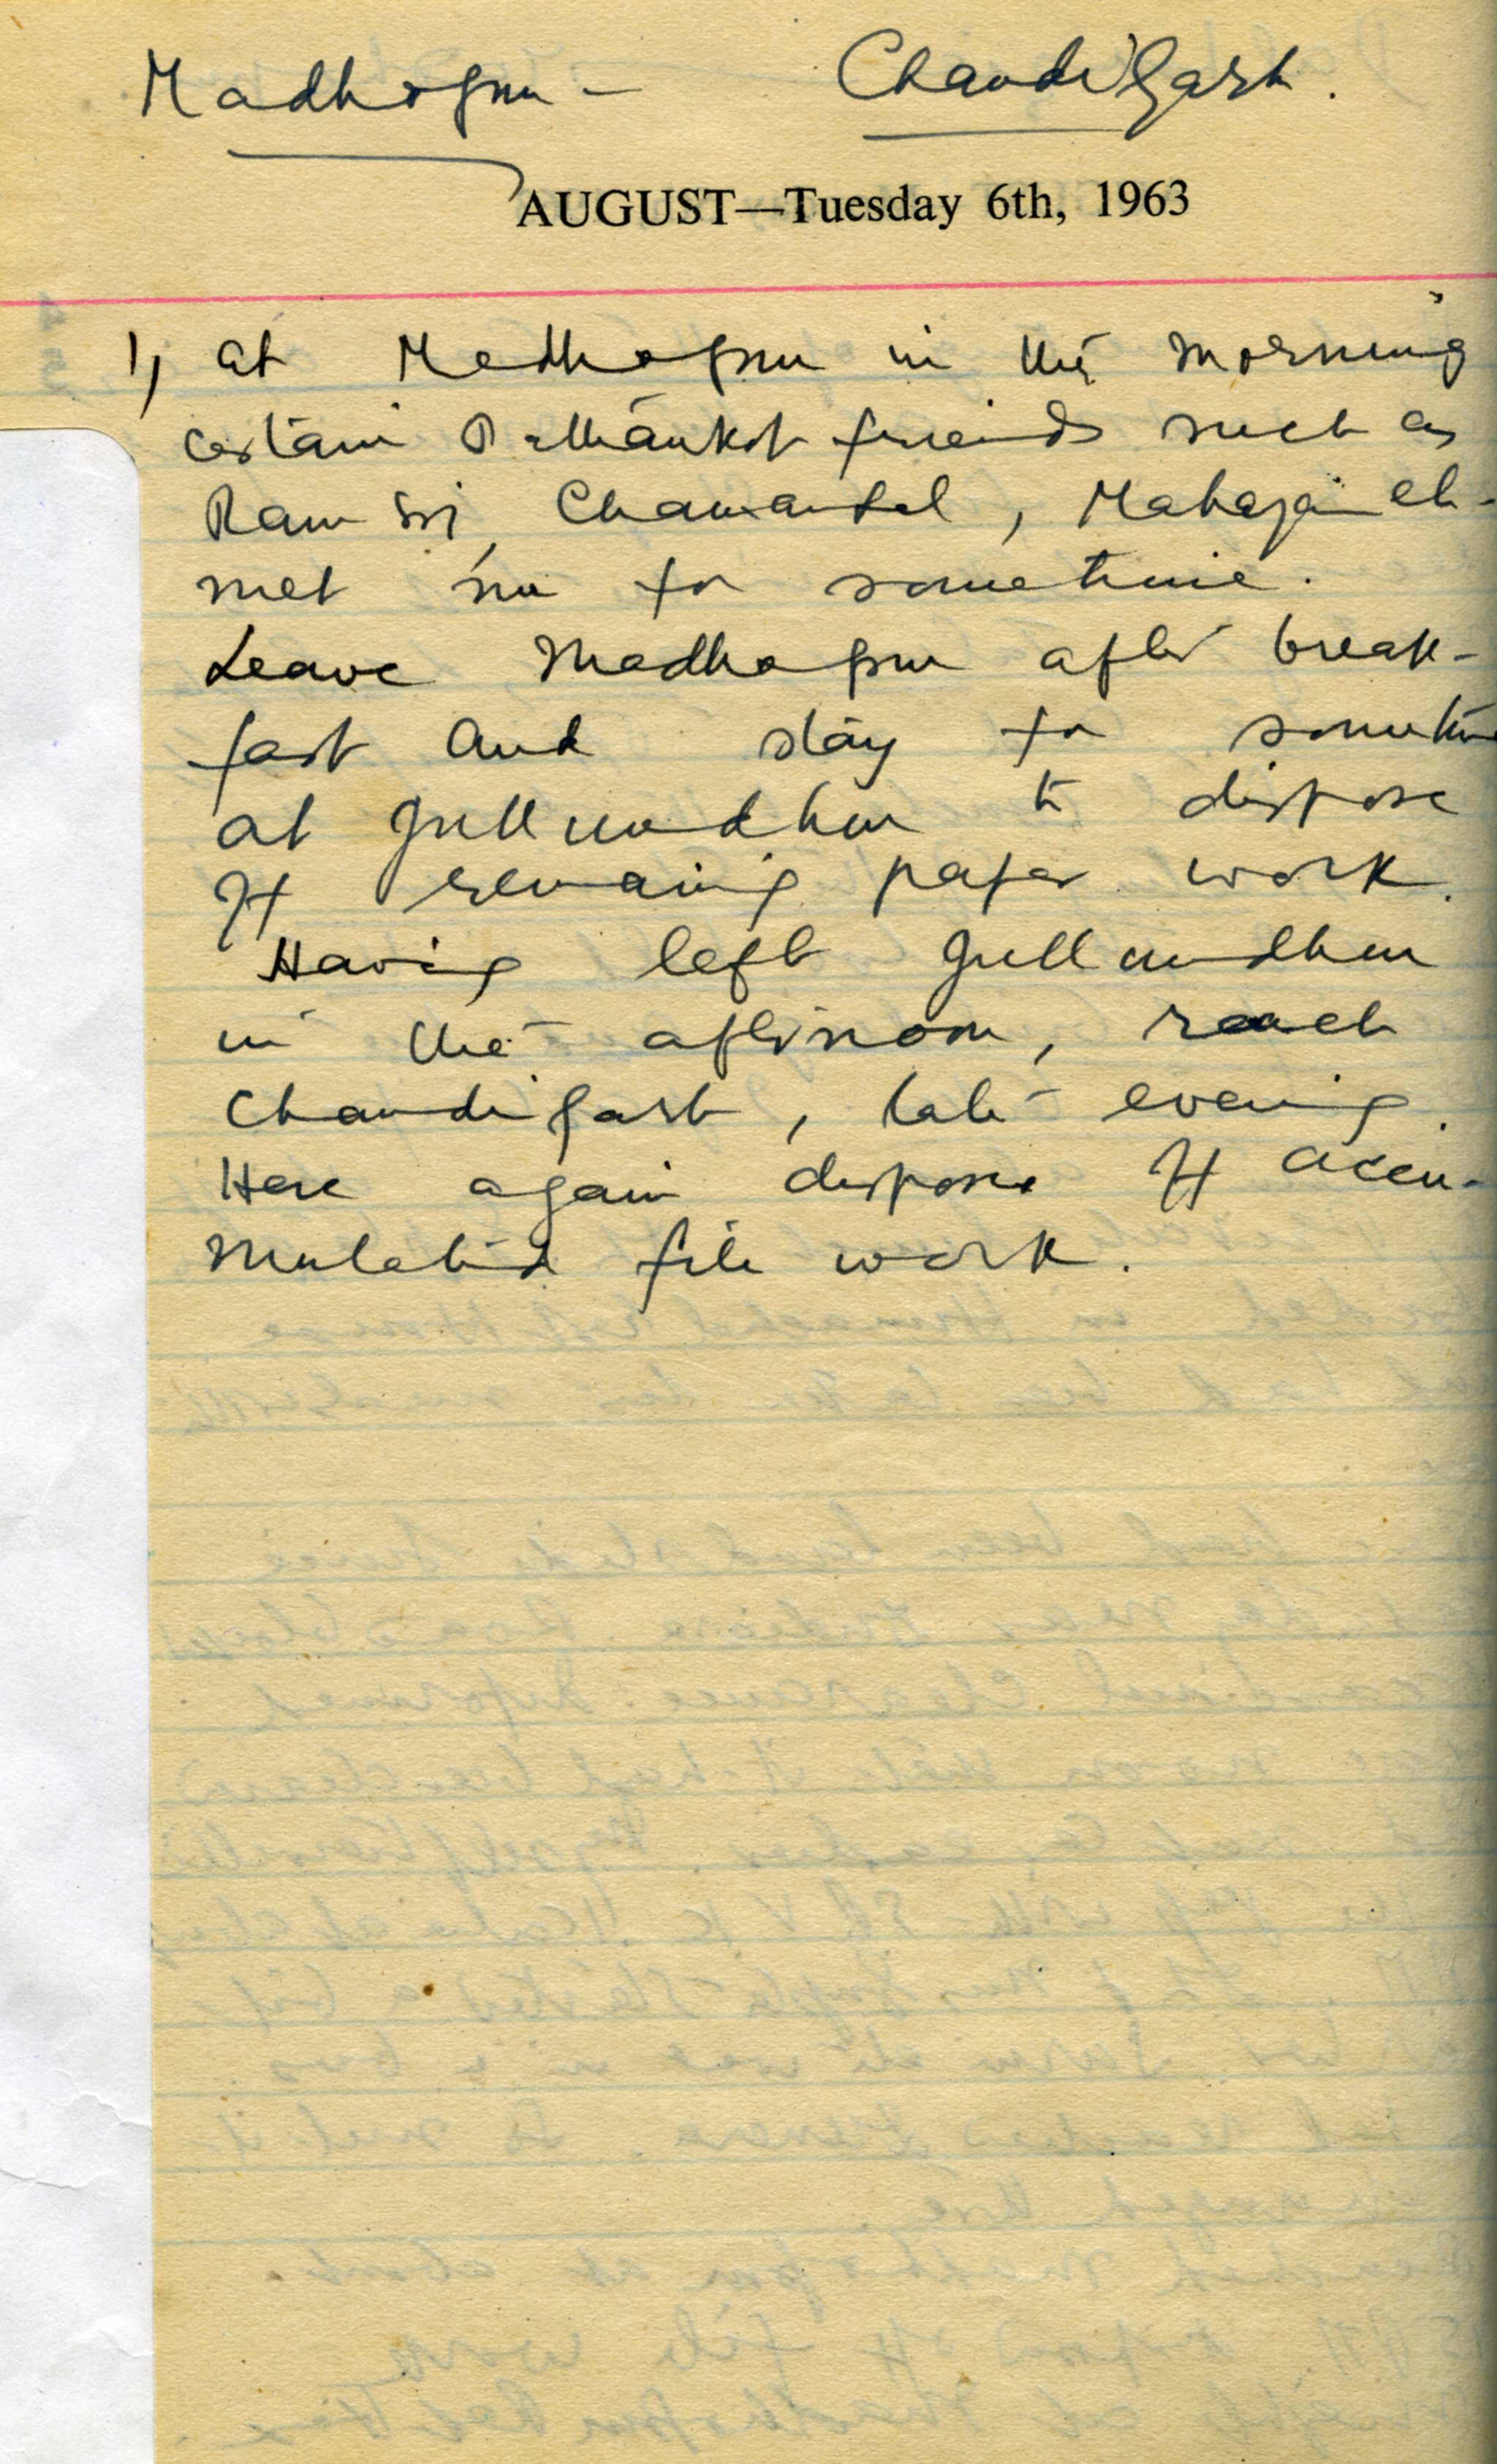 Madhopur - Chandigarh.
AUGUST—Tuesday 6th, 1963
1, at Madhopur in the morning
certain Pathankot friends such as
Ram Chamanlal, Mahajan
met me for sometime.
Leave Madhopur after break-
fast and stay for sometime
at Jullundhur to dispose
off remaing paper work.
Having left Jullundhur
in the afternoon, reach
Chandigarh, late evening.
Here again dispose off accu-
mulated file work.